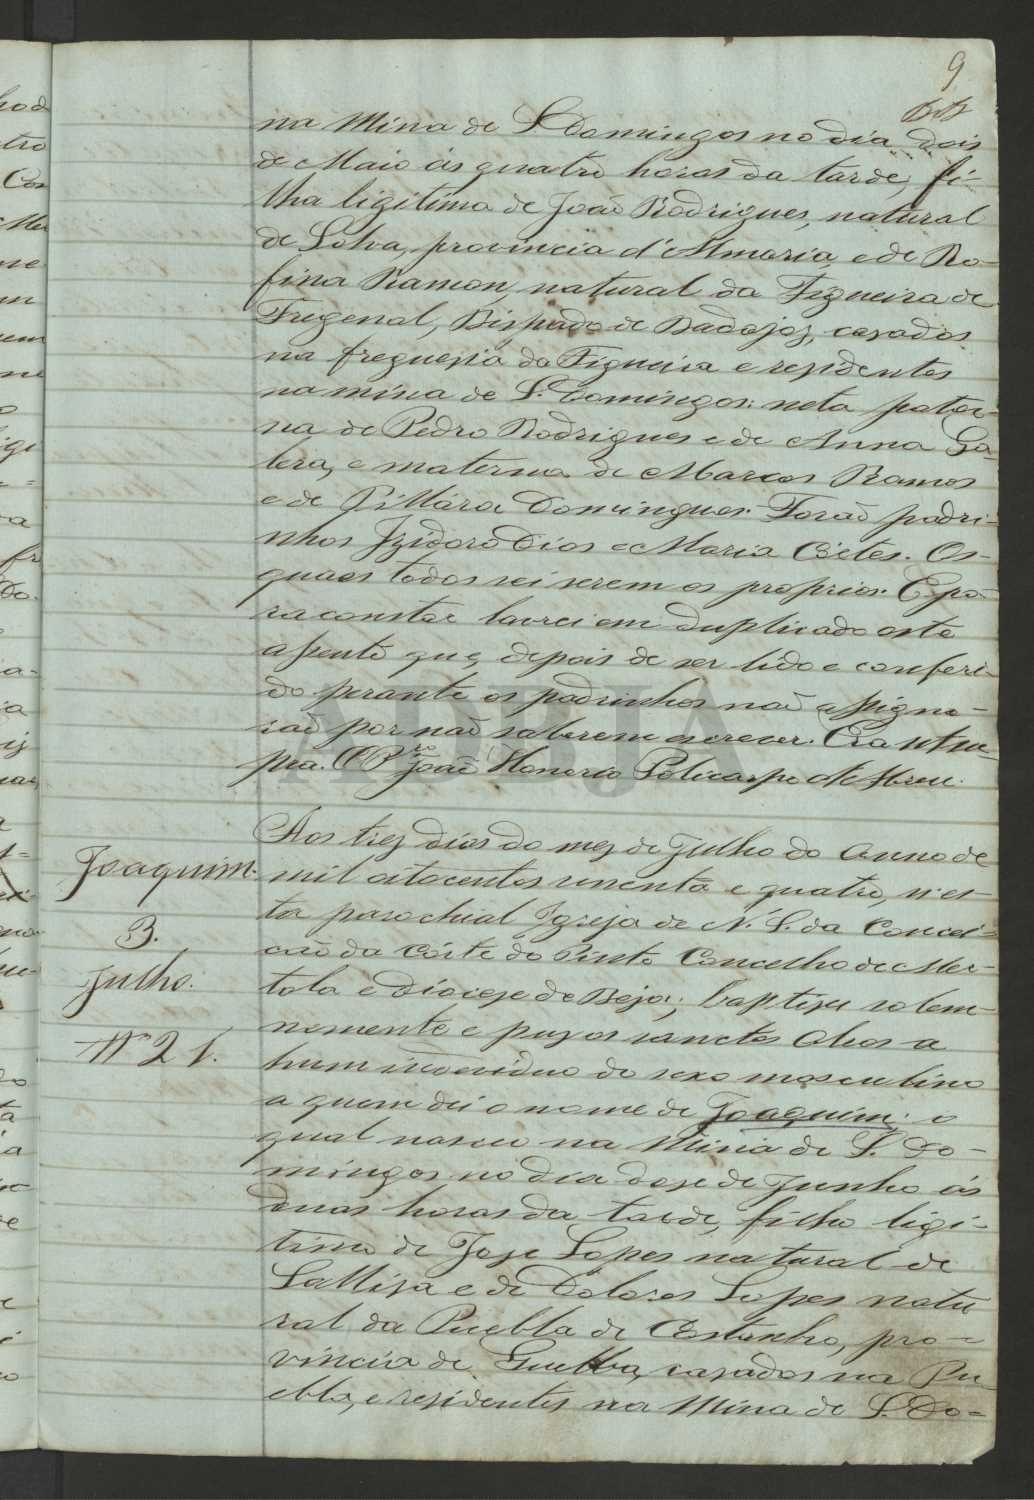 9
na Mina de S. Domingos no dia dois
de Maio ás quatro horas da tarde, fi-
lha ligitima de João Rodrigues, natural
de Lohra, provincia d'Almaria e de Ro-
fina Ramon, natural da Figueira de
Fregenal, Bispado de Badajoz, casados
na freguesia da Figueira e residentes
na mina de S. Domingos: neta pater-
na de Pedro Rodrigues e de Anna Ga-
lera, e materna de Marcos Ramos
e de Domingues. Forão padri-
nhos Izidoro Dios e Maria Cortes. Os
quaes todos sei serem os proprios. E pa-
ra constar lavrei em duplicado este
assento que, depois de ser lido e conferi-
do perante os padrinhos não assigna-
rão por não saberem escrever. Era ut su-
pra. O P.ro João Honorio Policarpo de Abreu.
Aos trez dias do mez de Julho do anno de
Joaquim.
mil oitocentos secenta e quatro, n'es-
ta parochial Igreja de N. S. da Concei-
B.
ção da Córte do Pinto Concelho de Mer-
Julho.
tola e Diocese de Beja, baptizei solem-
nemente e puz os sanctos Oleos a
Nº 21.
hum individuo do sexo masculino
a quem dei o nome de Joaquim: o
qual nasceu na Mina de S. Do-
mingos no dia doze de Junho ás
duas horas da tarde, filho ligi-
timo de Jose Lopes natural de
e de Dolores Lopes natu-
ral da Puebla de pro-
vincia de Guelba, casados na Pu-
ebla, e residentes na Mina de S. Do-
ADBJA